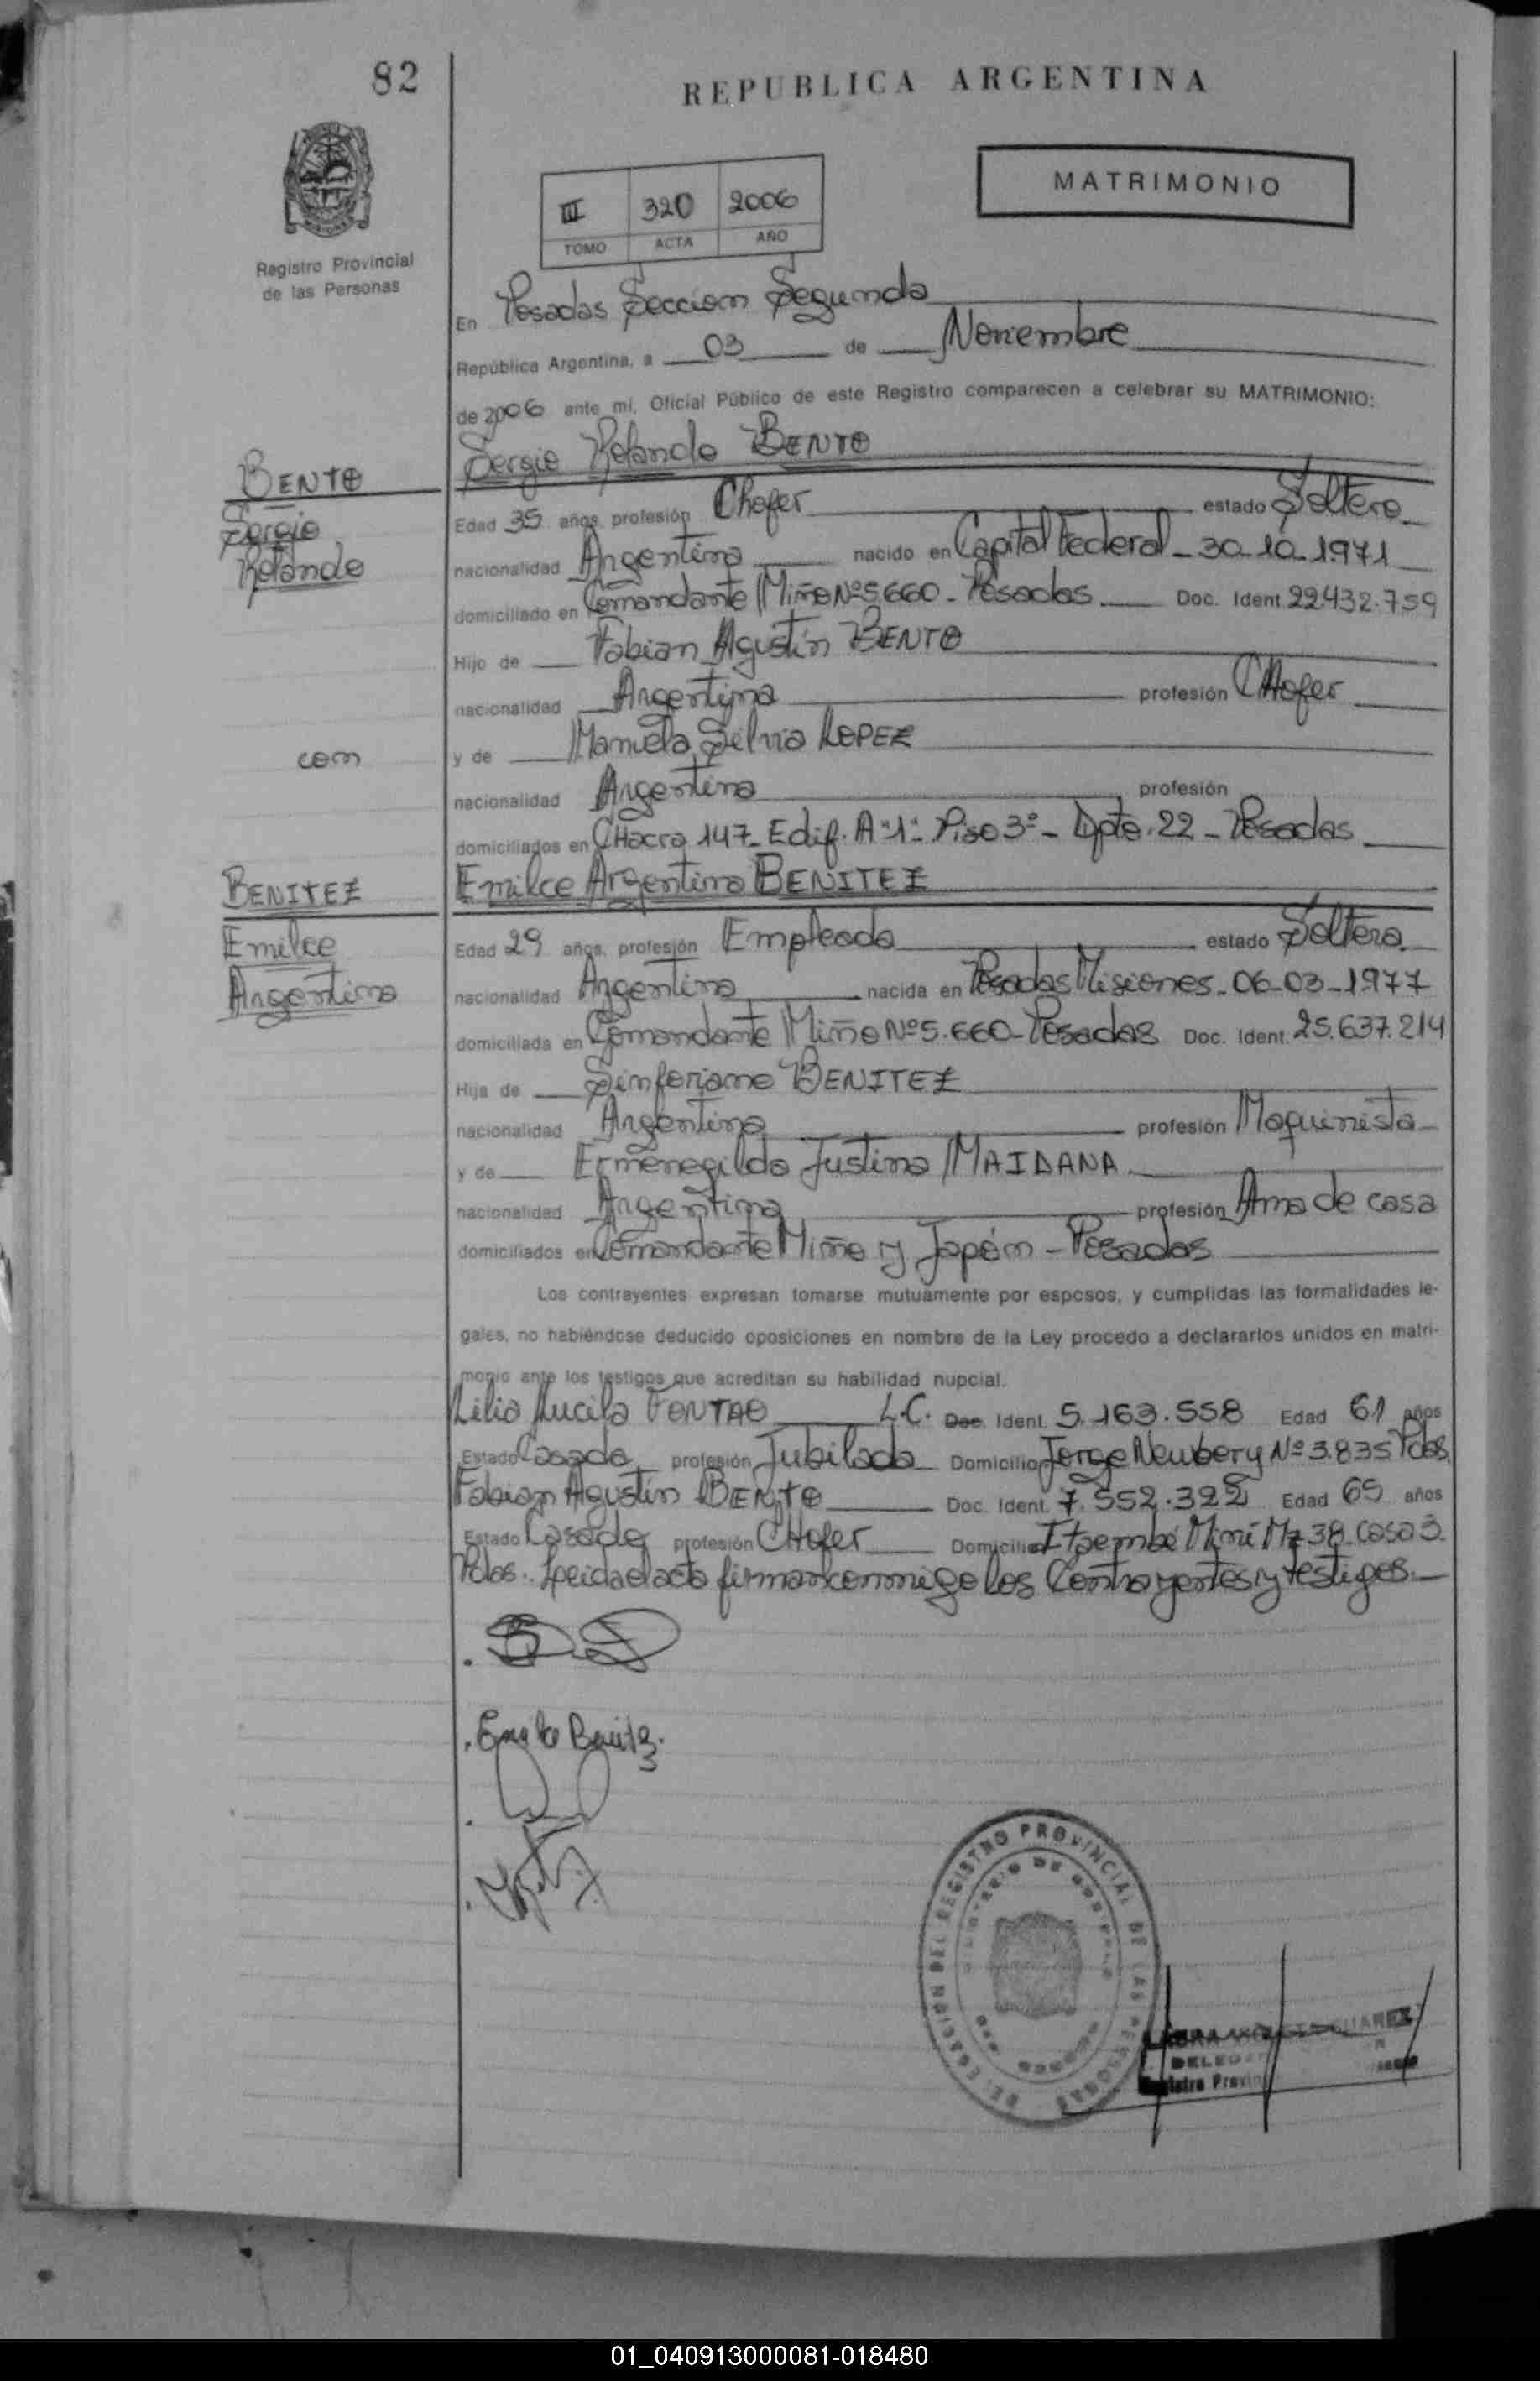 82
REPUBLICA ARGENTINA
MATRIMONIO
III 320 2006
TOMO ACTA AÑO
Registro Provincial
de las Personas
En Posadas Seccion Segunda
República Argentina, a 03 de Noviembre
de 2006 ante mí, Oficial Público de este Registro comparecen a celebrar su MATRIMONIO:
Sergio Rolando BENTO
BENTO
Sergio
Rolando
Edad 35 años, profesión Chofer estado Soltero
nacionalidad Argentina nacido en Capital Federal - 30-10-1971
domiciliado en Comandante Miño Nº 5.660 - Posadas Doc. Ident. 22.432.759
Hijo de Fabian Agustín BENTO
nacionalidad Argentina profesión CHofer
con
y de Manuela Silvia LOPEZ
nacionalidad Argentina profesión
domiciliados en CHacra 147- Edif. A "1" Piso 3º - Dpto. 22 - Posadas
BENITEZ
Emilce
Argentina
Emilce Argentina BENITEZ
Edad 29 años, profesión Empleada estado Soltera
nacionalidad Argentina nacida en Posadas Misiones - 06-03-1977
domiciliada en Comandante Miño Nº 5.660 - Posadas Doc. Ident. 25.637.214
Hija de Sinforiano BENITEZ
nacionalidad Argentina profesión Maquinista
y de Ermenegilda Justina MAIDANA
nacionalidad Argentina profesión Ama de casa
domiciliados en Comandante Miño y Japón - Posadas
Los contrayentes expresan tomarse mutuamente por esposos, y cumplidas las formalidades le-
gales, no habiéndose deducido oposiciones en nombre de la Ley procedo a declararlos unidos en matri-
monio ante los testigos que acreditan su habilidad nupcial.
Lilia Lucila FONTAO L.C. Doc. Ident. 5.163.558 Edad 61 años
Estado Casada profesión Jubilada Domicilio Jorge Newbery Nº 3.835 Pdas.
Fabian Agustín BENTO Doc. Ident. 7.552.322 Edad 65 años
Estado Casado profesión CHofer Domicilio Itaembé Miní Mz 38 casa 3.
Pdas. Leida el acta firman conmigo los Contrayentes y testigos.
Emilce Benitez.
REGISTRO PROVINCIAL DE LAS PERSONAS
SUAREZ
01_040913000081-018480